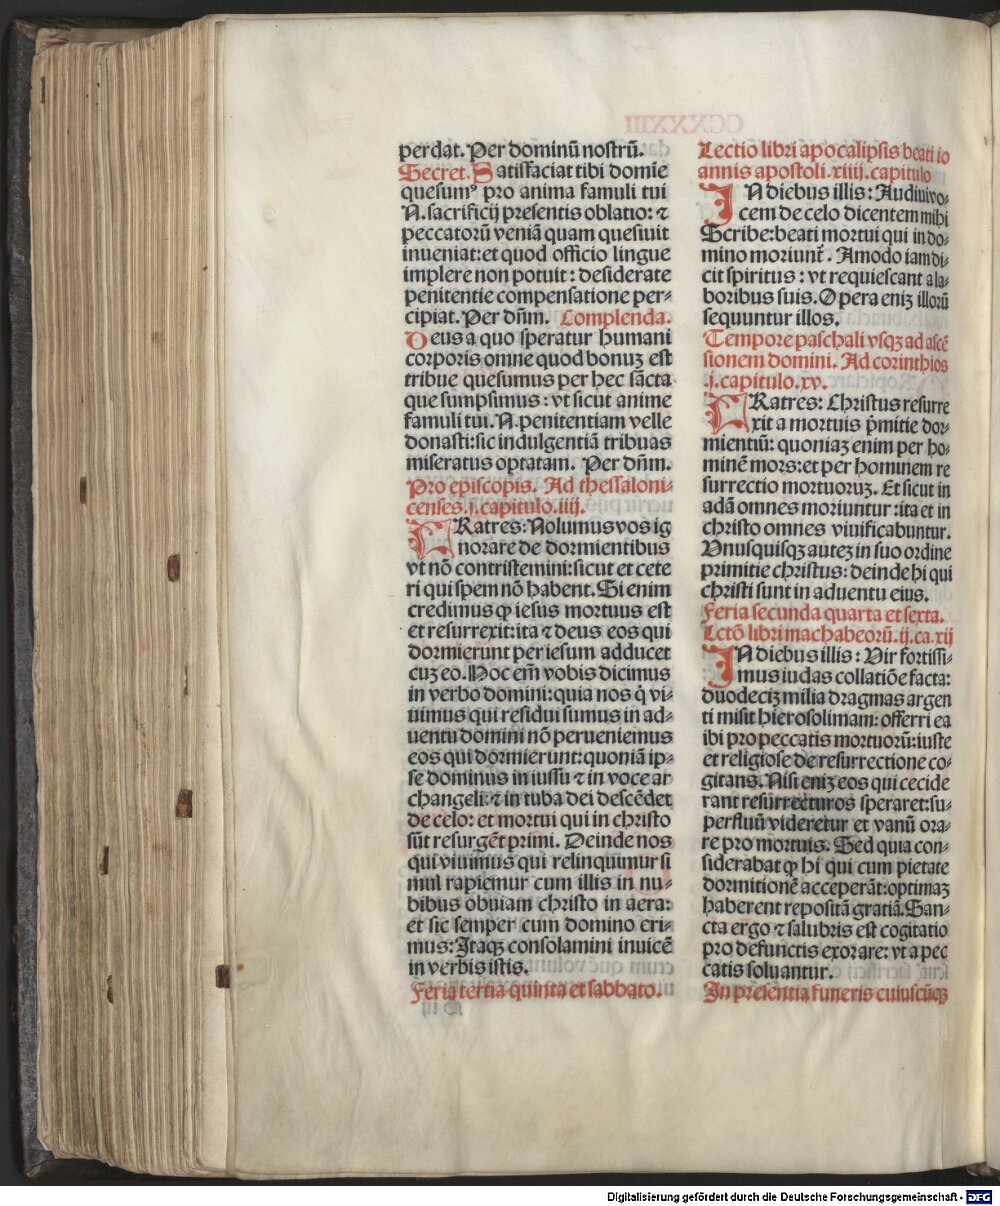 perdat. Per dominū nostrū.
Secret. Satisfaciat tibi domīe
quesumꝰ pro anima famuli tui
N. sacrificij presentis oblatio: ⁊
peccatorū veniā quam quesiuit
inueniat: et quod officio lingue
implere non potuit: desiderate
penitentie compensatione per⸗
cipiat. Per dn̄m. Complenda.
Deus a quo speratur humani
corporis omne quod bonuꝫ est
tribue quesumus per hec sācta
que sumpsimus: vt sicut anime
famuli tui. N. penitentiam velle
donasti: sic indulgentiā tribuas
miseratus optatam. Per dn̄m.
Pro episcopis. Ad thessaloni⸗
censes. j. capitulo. iiij.
FRatres: Nolumus vos ig
norare de dormientibus
vt nō contristemini: sicut et cete
ri qui spem nō habent. Si enim
credimus ꝙ iesus mortuus est
et resurrexit: ita ⁊ deus eos qui
dormierunt per iesum adducet
cuꝫ eo. Hoc em̄ vobis dicimus
in verbo domini: quia nos q̇ vi⸗
uimus qui residui sumus in ad⸗
uentu domini nō perueniemus
eos qui dormierunt: quoniā ip⸗
se dominus in iussu ⁊ in voce ar
changeli: ⁊ in tuba dei descēdet
de celo: et mortui qui in christo
sūt resurgēt primi. Deinde nos
qui viuimus qui relinquimur si
mul rapiemur cum illis in nu⸗
bibus obuiam christo in aera:
et sic semper cum domino eri⸗
mus: Itaqꝫ consolamini inuicē
in verbis istis.
Feria tertia quinta et sabbato.
Lectio libri apocalipsis beati io
annis apostoli. xiiij. capitulo
IN diebus illis: Audiui vo⸗
cem de celo dicentem mihi
Scribe: beati mortui qui in do⸗
mino moriunt᷑. Amodo iam di⸗
cit spiritus: vt requiescant a la⸗
boribus suis. Opera eniꝫ illorū
sequuntur illos.
Tempore paschali vsqꝫ ad ascē
sionem domini. Ad corinthios
.j. capitulo. xv.
FRatres: Christus resurre
xit a mortuis p̄mitie dor⸗
mientiū: quoniaꝫ enim per ho⸗
minē mors: et per hominem re
surrectio mortuoruꝫ. Et sicut in
adā omnes moriuntur: ita et in
christo omnes viuificabuntur.
Vnusquisqꝫ auteꝫ in suo ordine
primitie christus: deinde hi qui
christi sunt in aduentu eius.
Feria secunda quarta et sexta.
Lctō libri machabeorū. ij. ca. xij
IN diebus illis: Vir fortissi⸗
mus iudas collatiōe facta:
duodeciꝫ milia dragmas argen
ti misit hierosolimam: offerri ea
ibi pro peccatis mortuorū: iuste
et religiose de resurrectione co⸗
gitans. Nisi eniꝫ eos qui cecide
rant resurrecturos speraret: su⸗
perfluū videretur et vanū ora⸗
re pro mortuis. Sed quia con⸗
siderabat ꝙ hi qui cum pietate
dormitionē acceperāt: optimaꝫ
haberent repositā gratiā. San⸗
cta ergo ⁊ salubris est cogitatio
pro defunctis exorare: vt a pec
catis soluantur.
In presentia funeris cuiuscūqꝫ
Digitalisierung gefördert durch die Deutsche Forschungsgemeinschaft - DFG